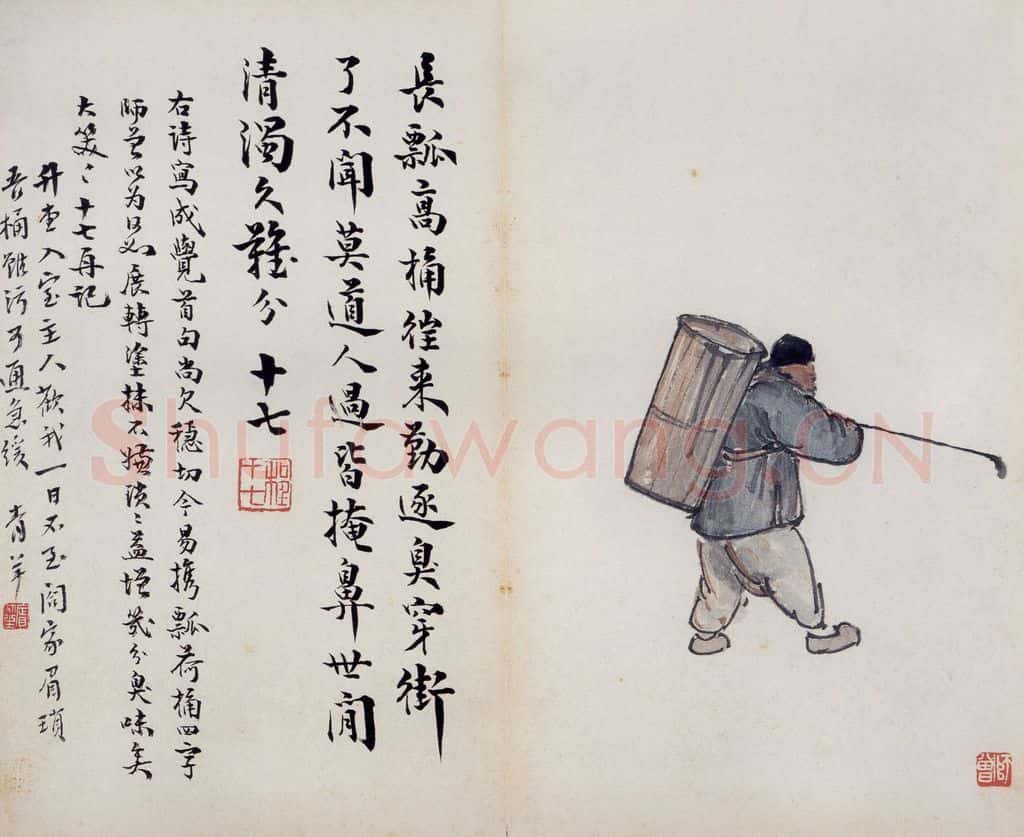 長瓢高桶徃来勤逐臭穿街
了不聞莫道人過皆掩鼻世間
清濁久難分 十七
右詩寫成覺首句尚欠穩切今易携瓢荷桶四字
師曾以为何如展轉塗抹不嫌益增幾分臭味矣
大笑〻十七再記
升堂入室主人歡我一日不至家眉瑣
吾桶雖污可通急緩 青羊
師曾
Shufawang.CN